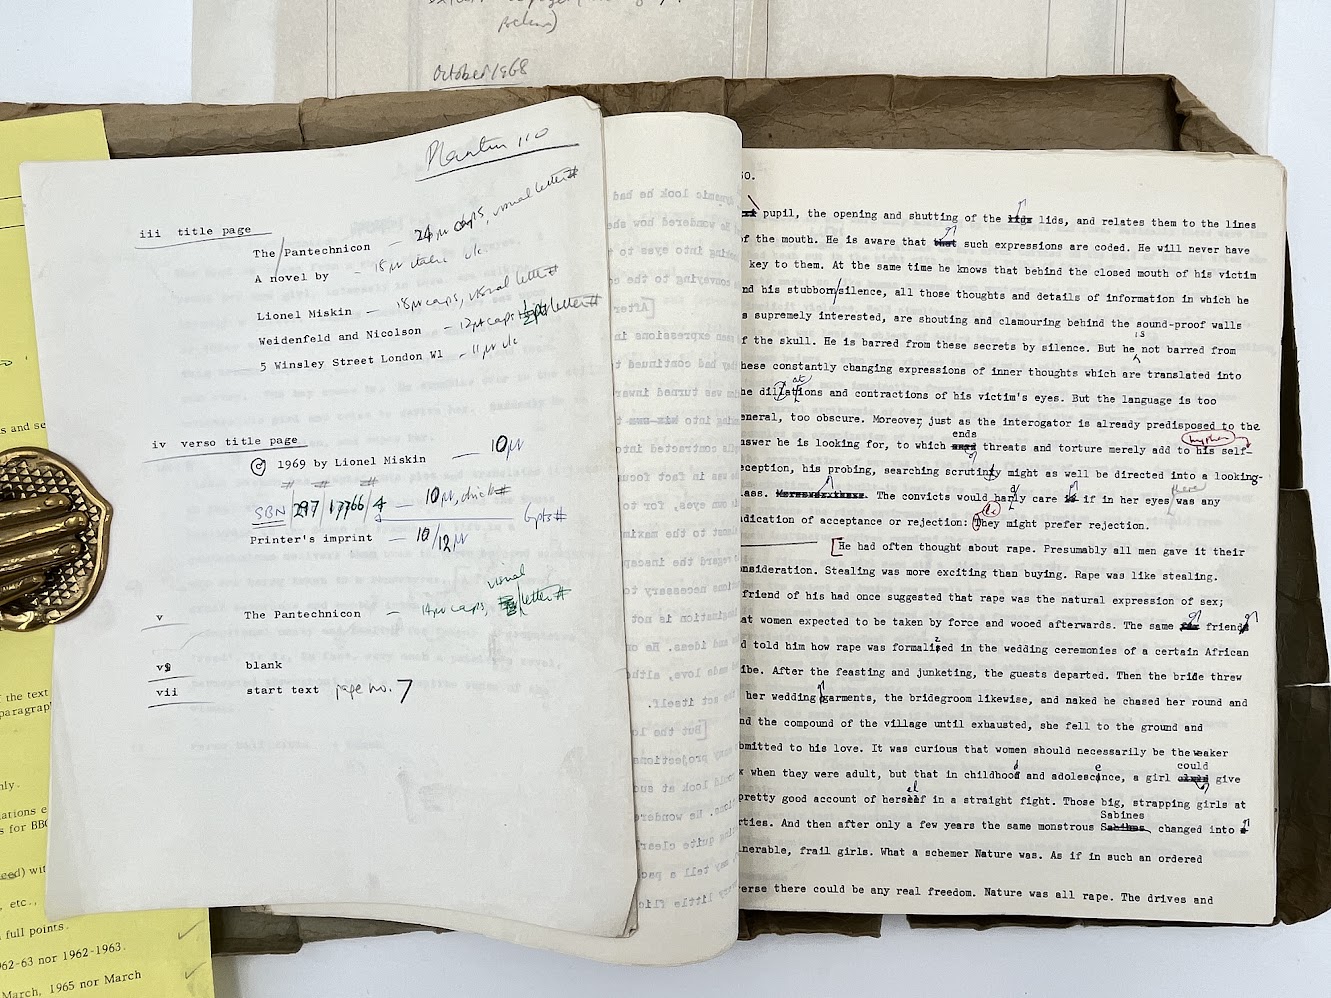 October 1968
Plantin 110
iii title page
The/Pantechnicon — 24pt caps, visual letter#
A novel by — 18pt italic u/c.
Lionel Miskin — 18pt caps, visual letter#
Weidenfeld and Nicolson — 12pt caps letter#
5 Winsley Street London W1 — 11pt u/c
iv verso title page
© 1969 by Lionel Miskin — 10pt
SBN/297/17766/4 — 10pt,
6pts#
Printer's imprint — 10/12pt
visual
v The Pantechnicon — 14pt caps, letter#
vi blank
vii start text page no. 7
s and se
f the text
paragrap
nly.
ations e
s for BBC
eed) wit
, etc.,
full points.
962-63 nor 1962-1963.
March, 1965 nor March
dynamic look he had
He wondered how she
into eyes to
conveying to the
[After
expressions in
had continued t
was turned inwar
into his own t
contracted into
was in fact focus
own eyes, for to
to the maxim
regard the inscap
necessary to
imagination is not
and ideas. He
made love, alth
act itself.
[But the lo
many projections
could look at su
He wondere
quite clear
may tell a pac
little flic
30.
pupil, the opening and shutting of the lids, and relates them to the lines
of the mouth. He is aware that such expressions are coded. He will never have
key to them. At the same time he knows that behind the closed mouth of his victim
nd his stubborn/silence, all those thoughts and details of information in which he
s supremely interested, are shouting and clamouring behind the sound-proof walls
f the skull. He is barred from these secrets by silence. But he is not barred from
hese constantly changing expressions of inner thoughts which are translated into
he dilations and contractions of his victim's eyes. But the language is too
eneral, too obscure. Moreover, just as the interogator is already predisposed to the
nswer he is looking for, to which ends threats and torture merely add to his self-
hyphen
eception, his probing, searching scrutiny might as well be directed into a looking-
lass. The convicts would hardly care if in her eyes there was any
ndication of acceptance or rejection: They might prefer rejection.
[He had often thought about rape. Presumably all men gave it their
onsideration. Stealing was more exciting than buying. Rape was like stealing.
friend of his had once suggested that rape was the natural expression of sex;
at women expected to be taken by force and wooed afterwards. The same friend
d told him how rape was formalized in the wedding ceremonies of a certain African
ibe. After the feasting and junketing, the guests departed. Then the bride threw
her wedding garments, the bridegroom likewise, and naked he chased her round and
nd the compound of the village until exhausted, she fell to the ground and
bmitted to his love. It was curious that women should necessarily be the weaker
x when they were adult, but that in childhood and adolescence, a girl could give
pretty good account of herself in a straight fight. Those big, strapping girls at
rties. And then after only a few years the same monstrous Sabines changed into
lnerable, frail girls. What a schemer Nature was. As if in such an ordered
erse there could be any real freedom. Nature was all rape. The drives and